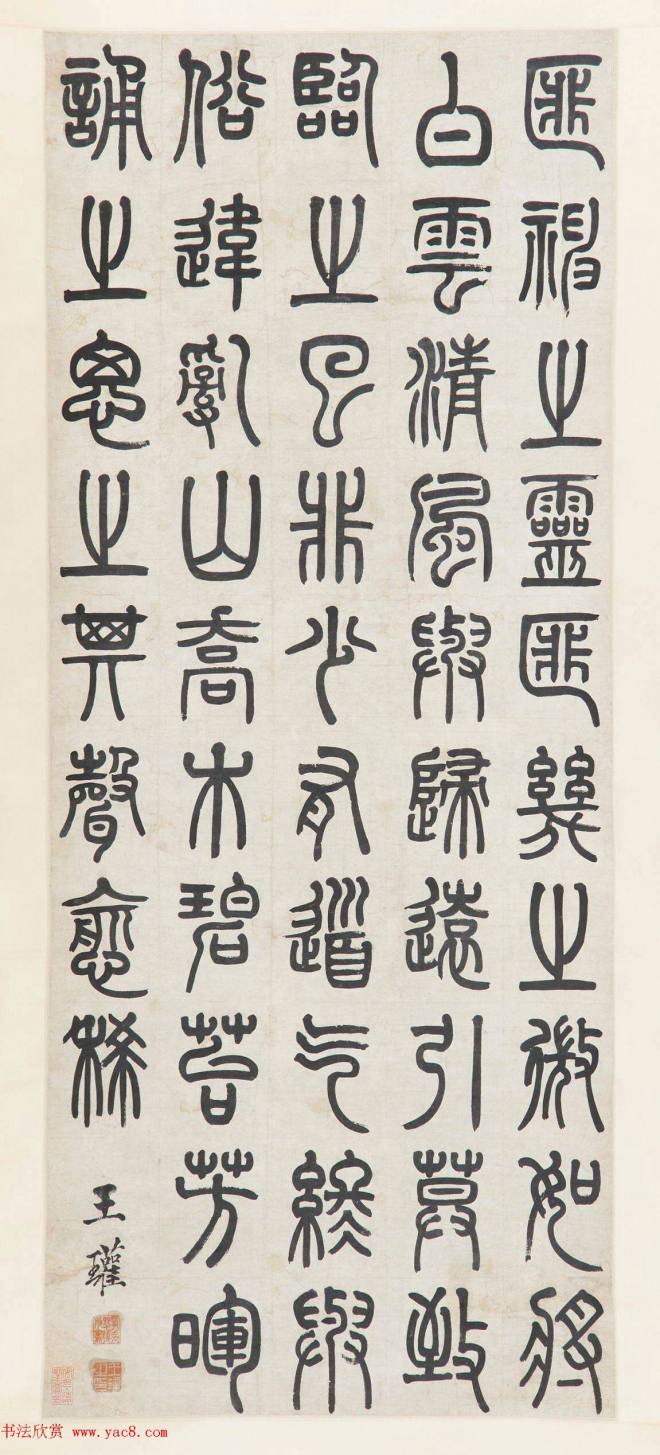 匪神之靈匪幾之微如將
白雲清風與歸遠引莫至
臨之已非少有道气終與
俗違亂山喬木碧苔芳暉
誦之思之其聲愈稀
王瓘
书法欣赏 www.yac8.com